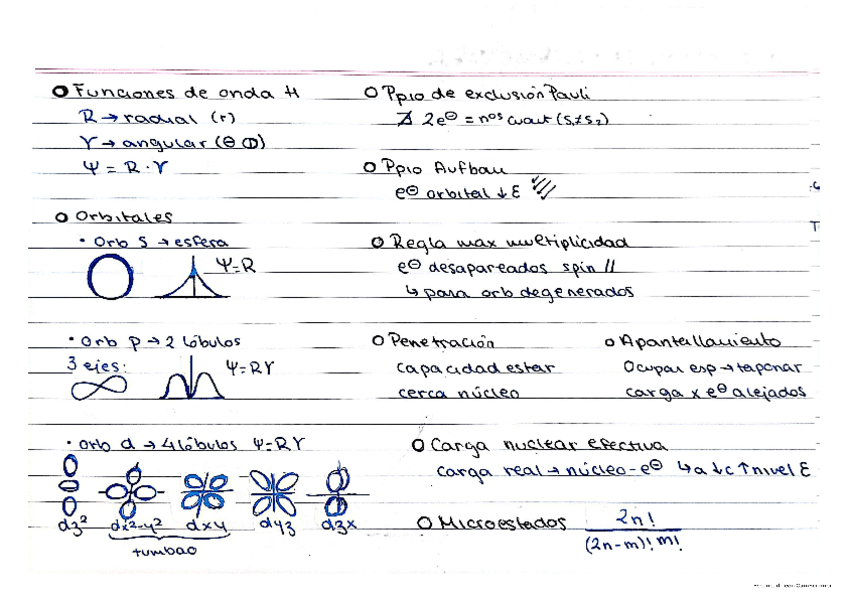 O Funciones de onda H
R → radial (r)
Y → angular (θ Φ)
Ψ = R · Y
O Orbitales
• Orb S → esfera
Ψ=R
• Orb p → 2 lóbulos
3 ejes:
Ψ=RY
• Orb d → 4 lóbulos Ψ=RY
dz² dx²-y² dxy dyz dzx
tumbao
O Ppio de exclusión Pauli
∄ 2e⊖ = nºs cuant (S₁≠S₂)
O Ppio Aufbau
e⊖ orbital ↓ E
O Regla max multiplicidad
e⊖ desapareados spin //
↳ para orb degenerados
O Penetración
capacidad estar
cerca núcleo
O Apantallamiento
Ocupar esp → taponar
carga x e⊖ alejados
O Carga nuclear efectiva
carga real → núcleo - e⊖ ↳ a ↓c ↑ nivel E
O Microestados 2n!
(2n-m)! m!